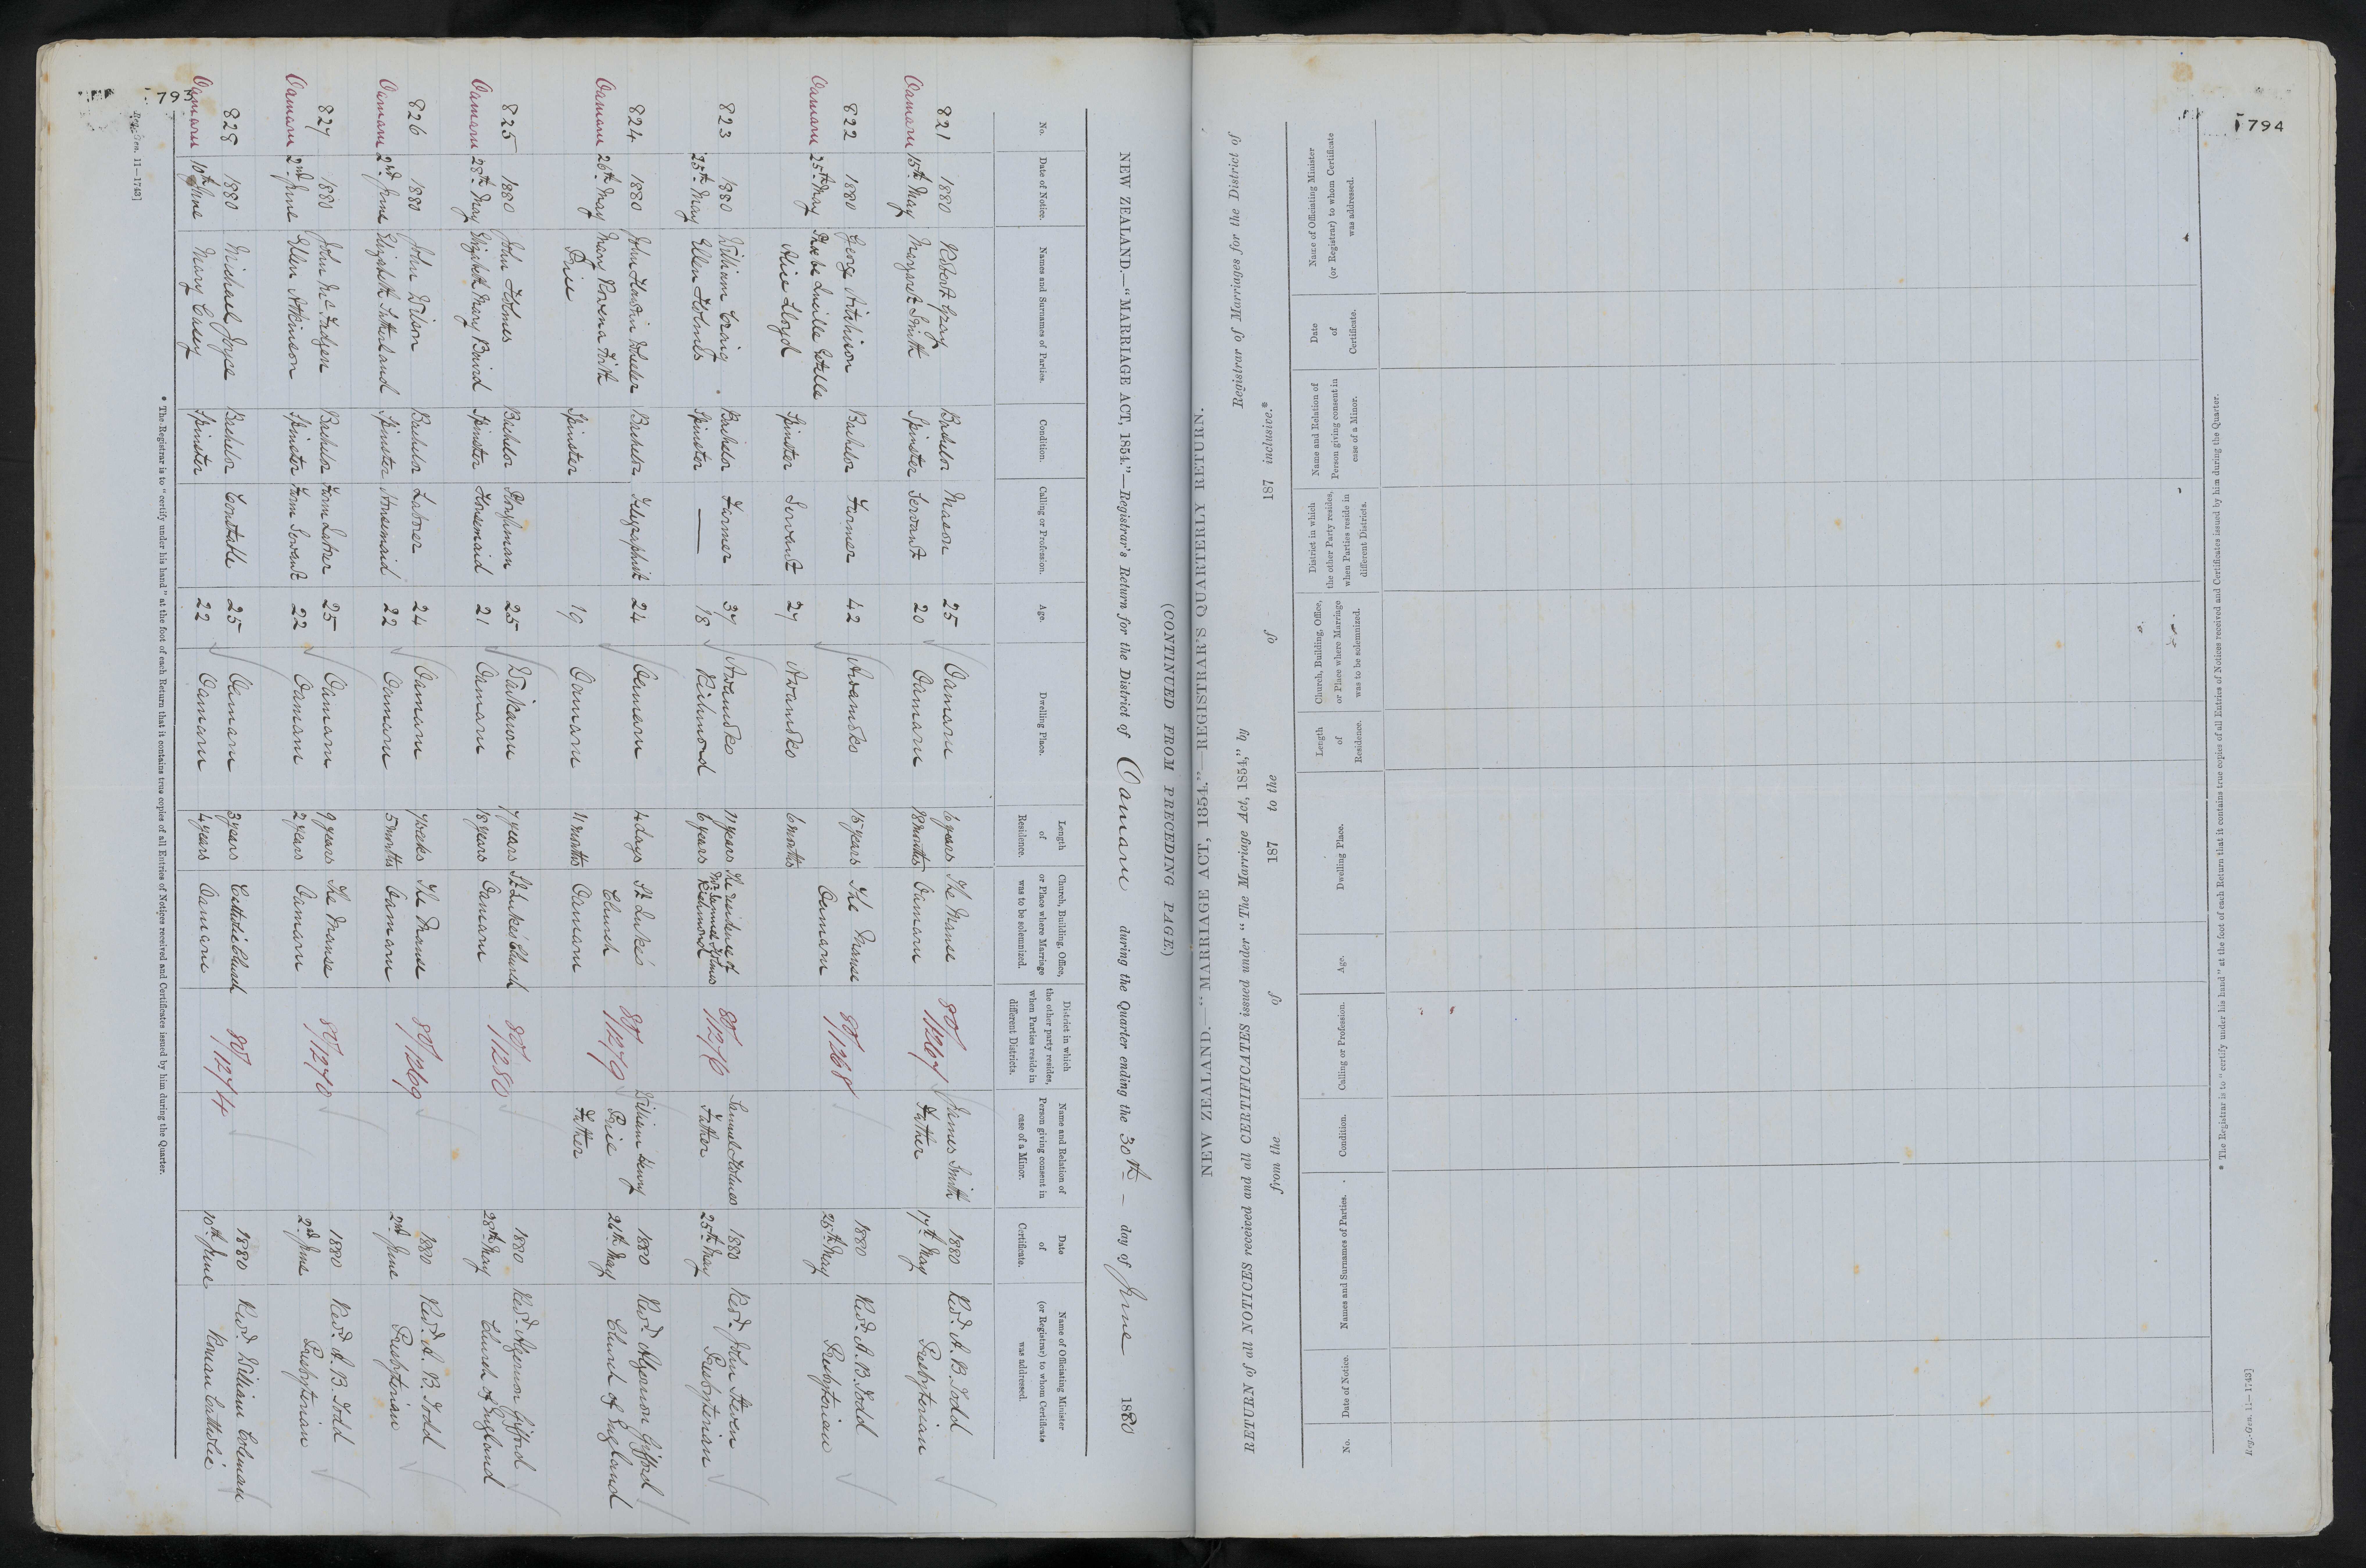 793
(CONTINUED FROM PRECEDING PAGE)
NEW ZEALAND.—"MARRIAGE ACT, 1854."—Registrar's Return for the District of Oamaru during the Quarter ending the 30th — day of June 1880
No. Date of Notice. Names and Surnames of Parties. Condition. Calling or Profession. Age. Dwelling Place. Length of Residence. Church, Building, Office, or Place where Marriage was to be solemnized. District in which the other party resides, when Parties reside in different Districts. Name and Relation of Person giving consent in case of a Minor. Date of Certificate. Name of Officiating Minister (or Registrar) to whom Certificate was addressed.
821 1880 Robert Gray Bachelor Mason 25 Oamaru 6 years The Manse 80/1267 James Smith 1880 Revd. A. B. Todd
Oamaru 15th May Margaret Smith Spinster Servant 20 Oamaru 18 months Oamaru Father 17th May Presbyterian
822 1880 George Aitchison Bachelor Farmer 42 Awamoko 15 years The Manse 80/1268 1880 Revd. A. B. Todd
Oamaru 25th May Phoebe Oamaru 25th May Presbyterian
Alice Lloyd Spinster Servant 27 Awamoko 6 months
823 1880 William Craig Bachelor Farmer 37 Awamoko 11 years The residence of 80/1276 Samuel Holmes 1880 Revd. John Steven
25th May Ellen Holmes Spinster — 18 Richmond 6 years Mr. Samuel Holmes Father 25th May Presbyterian
Richmond
824 1880 John Bachelor Telegraphist 24 Oamaru 4 days St. Luke's 80/1279 William Henry 1880 Revd. Algernon Gifford
Oamaru 26th May Mary Rowena Firth Church Prie 26th May Church of England
Prie Spinster 19 Oamaru 11 months Oamaru Father
825 1880 John Holmes Bachelor 25 Waikawa 7 years St. Luke's Church 80/1280 1880 Revd. Algernon Gifford
Oamaru 28th May Elizabeth Mary Spinster Housemaid 21 Oamaru 18 years Oamaru 28th May Church of England
826 1880 John Wilson Bachelor Laborer 24 Oamaru 7 weeks The Manse 80/1269 1880 Revd. A. B. Todd
Oamaru 2nd June Elizabeth Sutherland Spinster Housemaid 22 Oamaru 5 months Oamaru 2nd June Presbyterian
827 1880 John McFadyen Bachelor Farm Laborer 25 Oamaru 9 years The Manse 80/1270 1880 Revd. A. B. Todd
Oamaru 2nd June Ellen Atkinson Spinster Farm Servant 22 Oamaru 2 years Oamaru 2nd June Presbyterian
828 1880 Michael Joyce Bachelor Constable 25 Oamaru 3 years Catholic Church 80/1274 1880 Revd. William Coleman
Oamaru 10th June Mary Spinster 22 Oamaru 4 years Oamaru 10th June Roman Catholic
* The Registrar is to "certify under his hand" at the foot of each Return that it contains true copies of all Entries of Notices received and Certificates issued by him during the Quarter.
Reg.-Gen. 11—1743]
794
NEW ZEALAND.—"MARRIAGE ACT, 1854."—REGISTRAR'S QUARTERLY RETURN.
RETURN of all NOTICES received and all CERTIFICATES issued under "The Marriage Act, 1854," by Registrar of Marriages for the District of
from the of 187 to the of 187 inclusive.*
No. Date of Notice. Names and Surnames of Parties. Condition. Calling or Profession. Age. Dwelling Place. Length of Residence. Church, Building, Office, or Place where Marriage was to be solemnized. District in which the other Party resides, when Parties reside in different Districts. Name and Relation of Person giving consent in case of a Minor. Date of Certificate. Name of Officiating Minister (or Registrar) to whom Certificate was addressed.
* The Registrar is to "certify under his hand" at the foot of each Return that it contains true copies of all Entries of Notices received and Certificates issued by him during the Quarter.
Reg.-Gen. 11—1743]